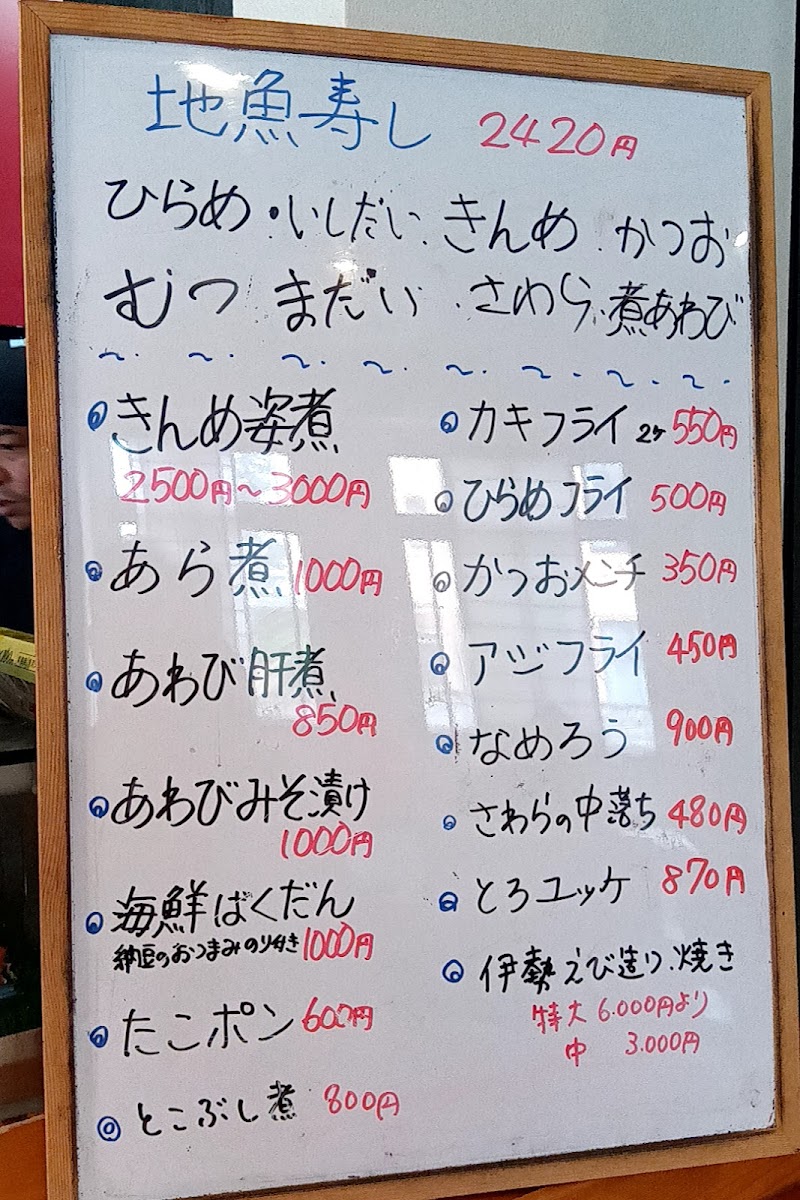 地魚寿し 2420円
ひらめ・いしだい、きんめ、かつお
むつ まだい、さわら、煮あわび
きんめ姿煮
2500円〜3000円
あら煮 1000円
あわび肝煮
850円
あわびみそ漬け
1000円
海鮮ばくだん
納豆のおつまみのり付き 1000円
たこポン 600円
とこぶし煮 800円
カキフライ 2ヶ 550円
ひらめフライ 500円
かつおメンチ 350円
アジフライ 450円
なめろう 900円
さわらの中落ち 480円
とろユッケ 870円
伊勢えび造り、焼き
特大 6.000円より
中 3.000円